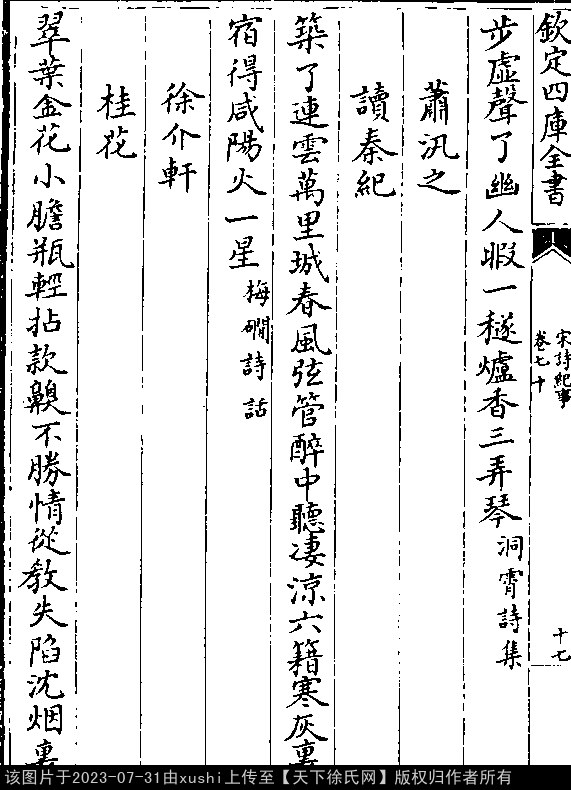 欽定四庫全書
宋詩紀事
卷七十
十七
步虛聲了幽人暇一穟爐香三弄琴 洞霄詩集
蕭汎之
讀秦紀
築了連雲萬里城春風弦管醉中聽凄涼六籍寒灰裏
宿得咸陽火一星 梅磵詩話
徐介軒
桂花
翠葉金花小膽瓶輕拈款齅不勝情從教失陷沈烟裏
该图片于2023-07-31由xushi上传至【天下徐氏网】版权归作者所有